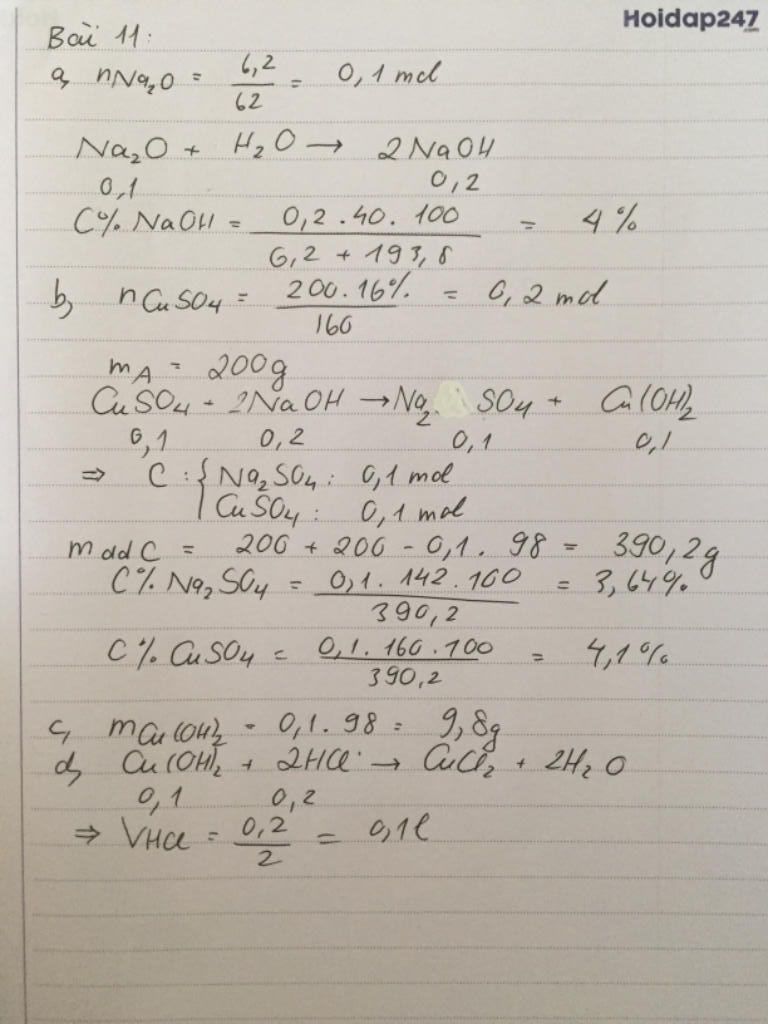 Hoidap247
.com
Bài 11:
a, nNa₂O = 6,2 / 62 = 0,1 mol
Na₂O + H₂O → 2NaOH
0,1 0,2
C% NaOH = 0,2 . 40 . 100 / 6,2 + 193,8 = 4%
b, nCuSO₄ = 200 . 16% / 160 = 0,2 mol
mA = 200g
CuSO₄ + 2NaOH → Na₂ SO₄ + Cu(OH)₂
0,1 0,2 0,1 0,1
⇒ C : { Na₂SO₄ : 0,1 mol
CuSO₄ : 0,1 mol
m dd C = 200 + 200 - 0,1 . 98 = 390,2g
C% Na₂SO₄ = 0,1 . 142 . 100 / 390,2 = 3,64%
C% CuSO₄ = 0,1 . 160 . 100 / 390,2 = 4,1%
c, mCu(OH)₂ = 0,1 . 98 = 9,8g
d, Cu(OH)₂ + 2HCl → CuCl₂ + 2H₂O
0,1 0,2
⇒ VHCl = 0,2 / 2 = 0,1l